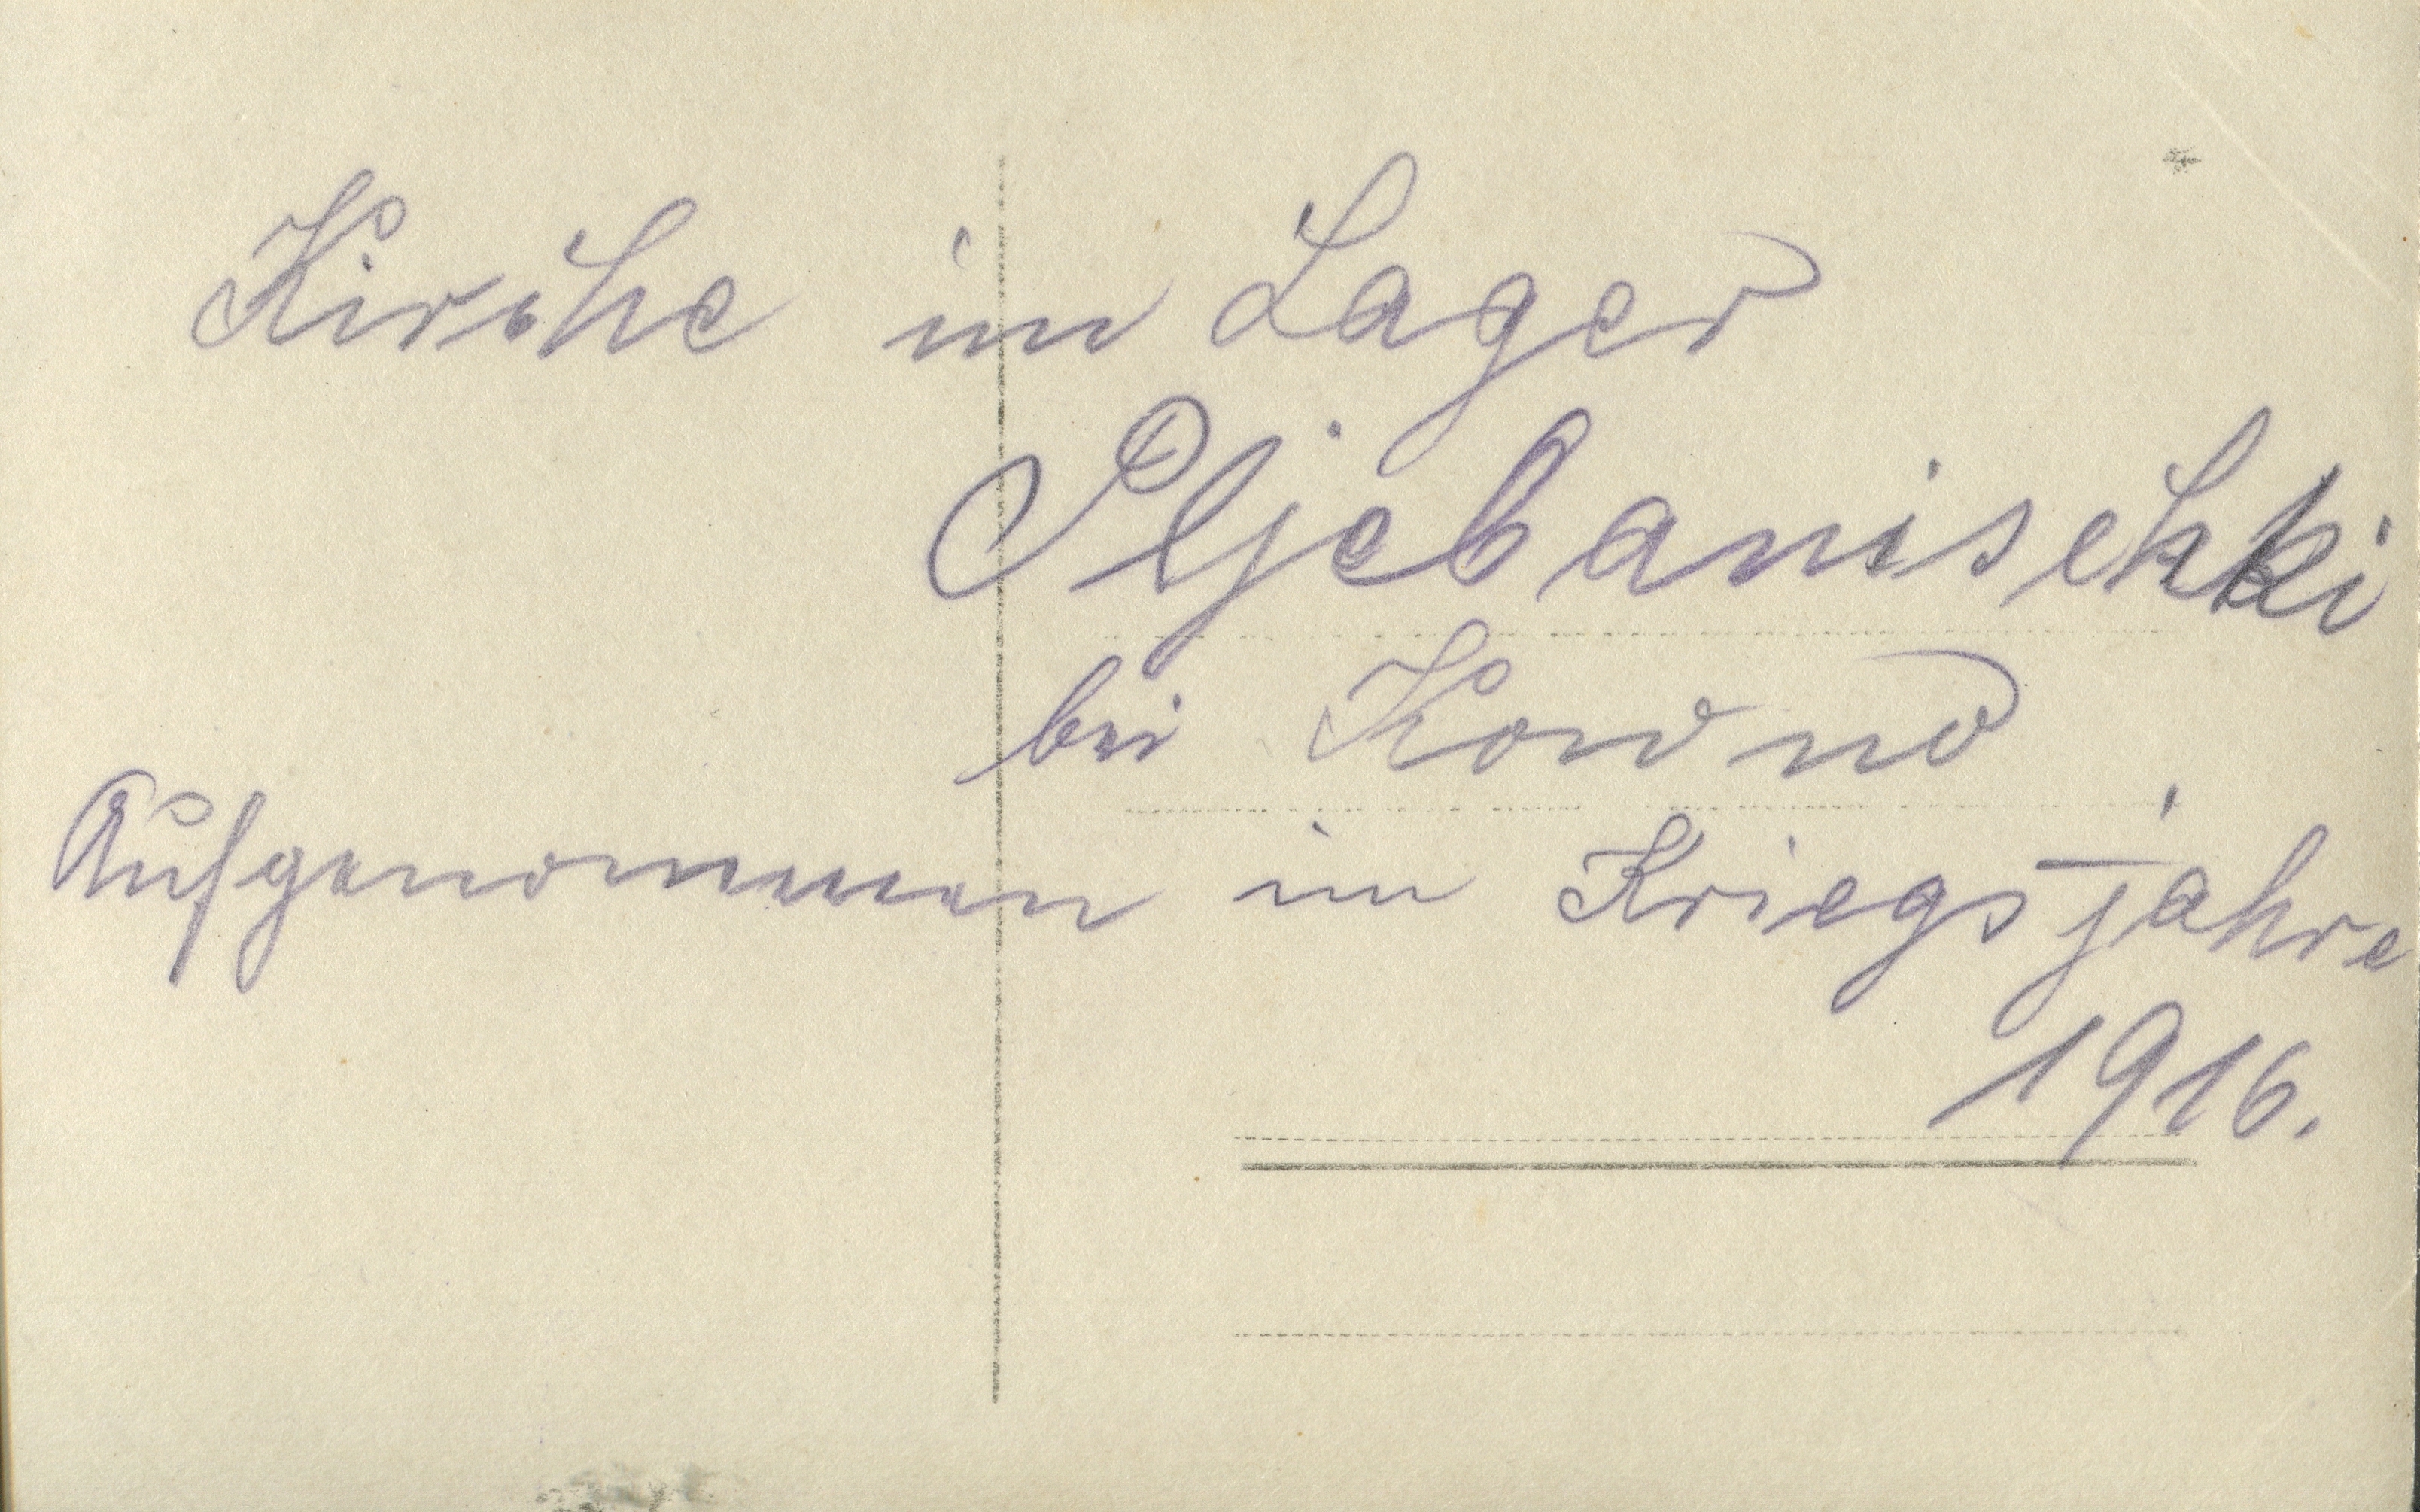 Kirche im Lager
Pljebanischki
bei Kowno
Aufgenommen im Kriegsjahre
1916.